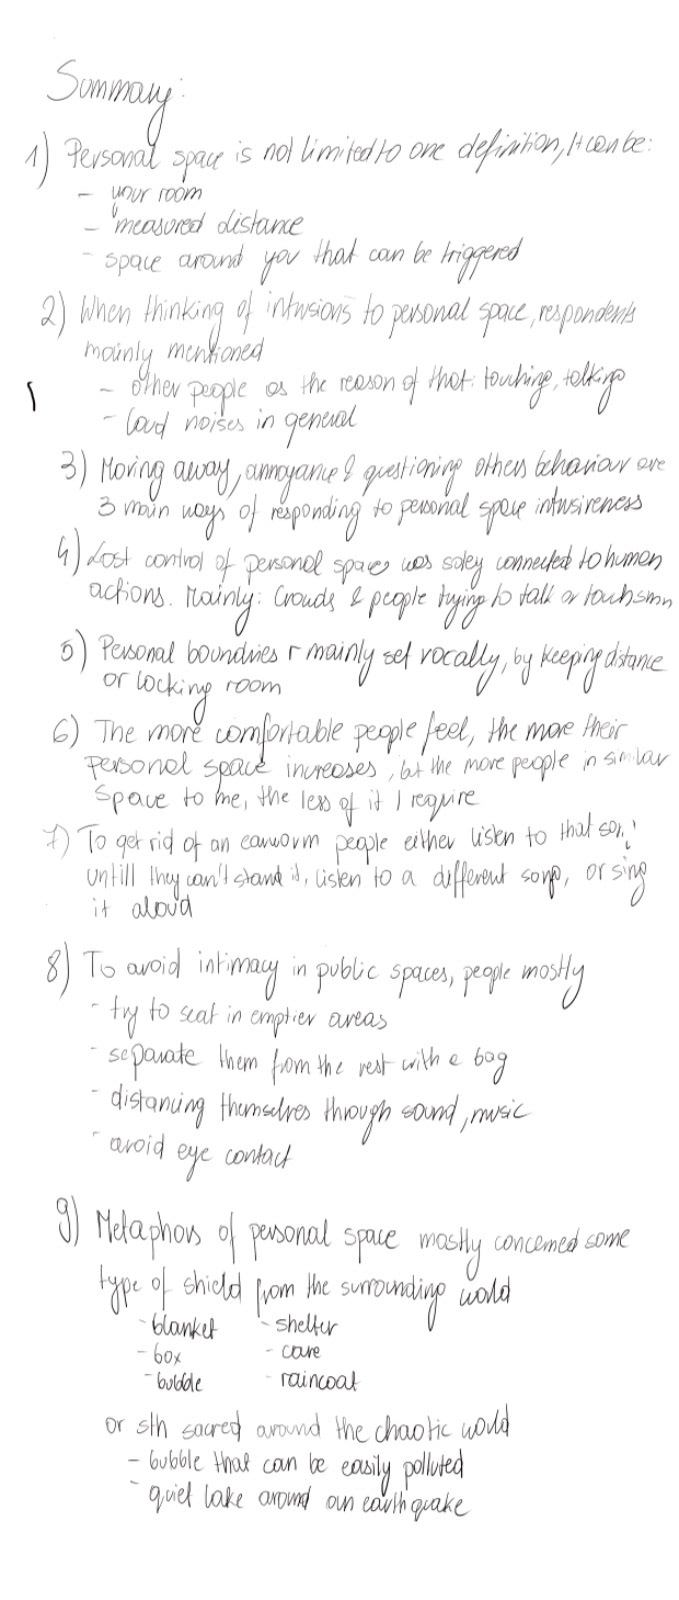 Summary:
1) Personal space is not limited to one definition, It can be:
- your room
- measured distance
- space around you that can be triggered
2) When thinking of intusions to personal space, respondents
mainly mentioned
- other people as the reason of that: touching, talking
- loud noises in general
3) Moving away, annoyance & questioning others behaviour are
3 main ways of responding to personal space intusireness
4) Lost control of personal space was soley connected to human
actions. Mainly: Crowds & people trying to talk or touch smn
5) Personal boundries r mainly set vocally, by keeping distance
or locking room
6) The more comfortable people feel, the more their
personal space increases, but the more people in similar
space to me, the less of it I require
7) To get rid of an earworm people either listen to that song
untill they can't stand it, listen to a different song, or sing
it aloud
8) To avoid intimacy in public spaces, people mostly
- try to seat in emptier areas
- separate them from the rest with a bag
- distancing themselves through sound, music
- avoid eye contact
9) Metaphors of personal space mostly concerned some
type of shield from the surrounding world
- blanket - shelter
- box - cave
- bubble - raincoat
or sth sacred around the chaotic world
- bubble that can be easily polluted
- quiet lake around an earthquake